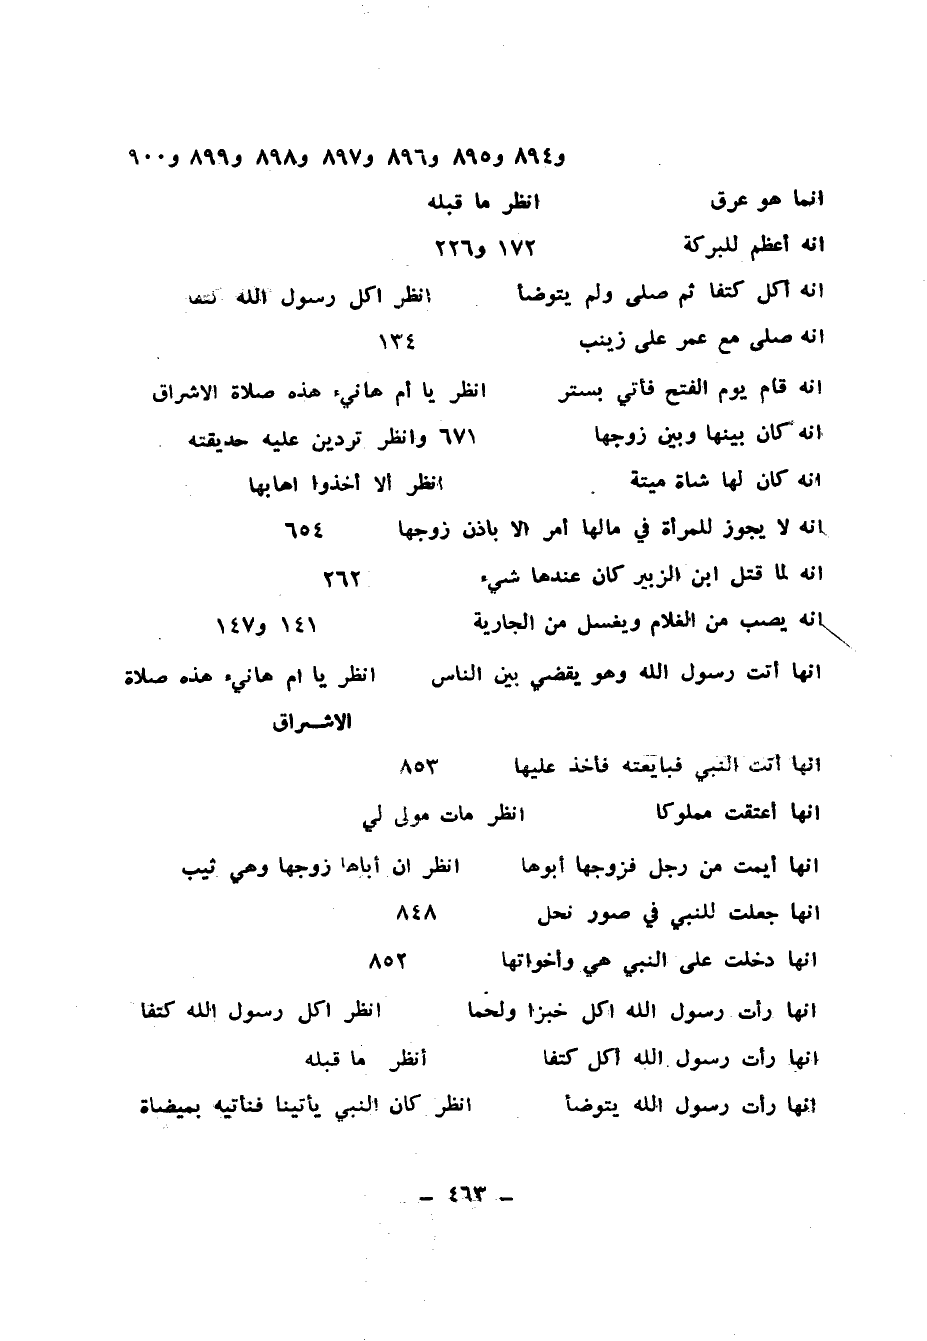 و٨٩٤ و٨٩٥ و٨٩٦ و٨٩٧ و٨٩٨ و٨٩٩ و٩٠٠
انما هو عرق انظر ما قبله
انه أعظم للبركة ١٧٢ و٢٢٦
انه أكل كتفا ثم صلى ولم يتوضأ انظر اكل رسول الله كتفا
انه صلى مع عمر على زينب ١٣٤
انه قام يوم الفتح فأتي بستر انظر يا أم هانيء هذه صلاة الاشراق
انه كان بينها وبين زوجها ٦٧١ وانظر تردين عليه حديقته
انه كان لها شاة ميتة انظر ألا أخذوا اهابها
انه لا يجوز للمرأة في مالها أمر الا باذن زوجها ٦٥٤
انه لما قتل ابن الزبير كان عندها شيء ٢٦٢
انه يصب من الغلام ويغسل من الجارية ١٤١ و١٤٧
انها أتت رسول الله وهو يقضي بين الناس انظر يا ام هانيء هذه صلاة
الاشـراق
انها أتت النبي فبايعته فأخذ عليها ٨٥٣
انها أعتقت مملوكا انظر مات مولى لي
انها أيمت من رجل فزوجها أبوها انظر ان أباها زوجها وهي ثيب
انها جعلت للنبي في صور نحل ٨٤٨
انها دخلت على النبي هي وأخواتها ٨٥٢
انها رأت رسول الله اكل خبزا ولحما انظر اكل رسول الله كتفا
انها رأت رسول الله أكل كتفا أنظر ما قبله
انها رأت رسول الله يتوضأ انظر كان النبي يأتينا فنأتيه بميضاة
– ٤٦٣ –